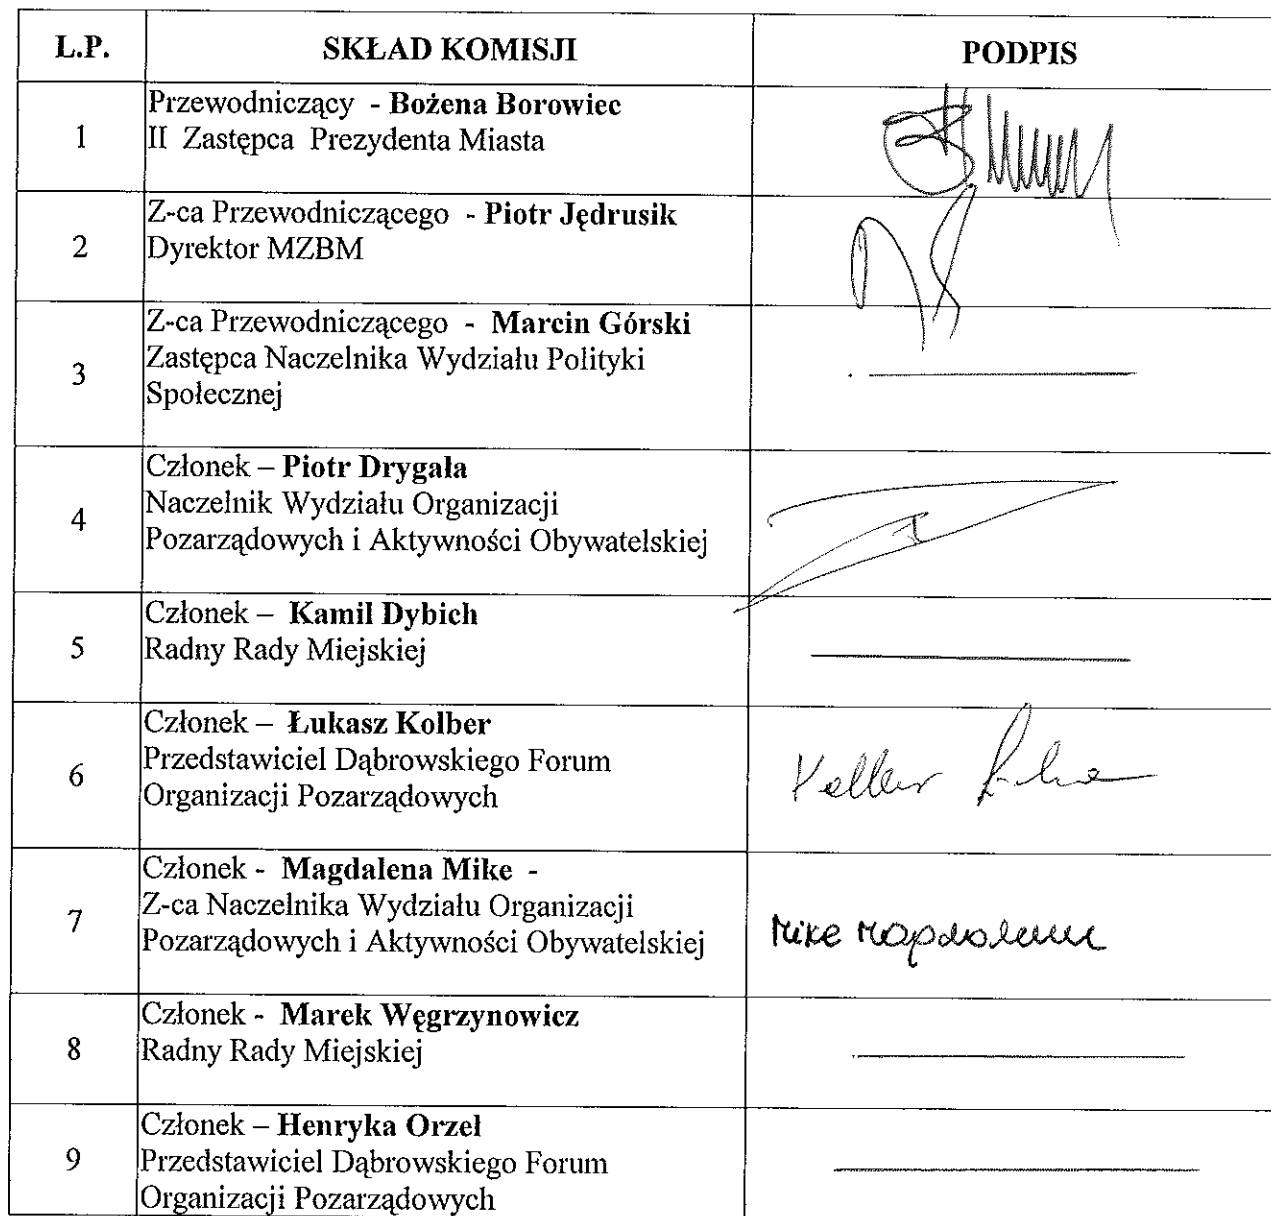 L.P. SKŁAD KOMISJI PODPIS
1
Przewodniczący - Bożena Borowiec
II Zastępca Prezydenta Miasta
2
Z-ca Przewodniczącego - Piotr Jędrusik
Dyrektor MZBM
3
Z-ca Przewodniczącego - Marcin Górski
Zastępca Naczelnika Wydziału Polityki
Społecznej
4
Członek – Piotr Drygała
Naczelnik Wydziału Organizacji
Pozarządowych i Aktywności Obywatelskiej
5
Członek – Kamil Dybich
Radny Rady Miejskiej
6
Członek – Łukasz Kolber
Przedstawiciel Dąbrowskiego Forum
Organizacji Pozarządowych
7
Członek - Magdalena Mike -
Z-ca Naczelnika Wydziału Organizacji
Pozarządowych i Aktywności Obywatelskiej
Mike Magdalena
8
Członek - Marek Węgrzynowicz
Radny Rady Miejskiej
9
Członek – Henryka Orzeł
Przedstawiciel Dąbrowskiego Forum
Organizacji Pozarządowych